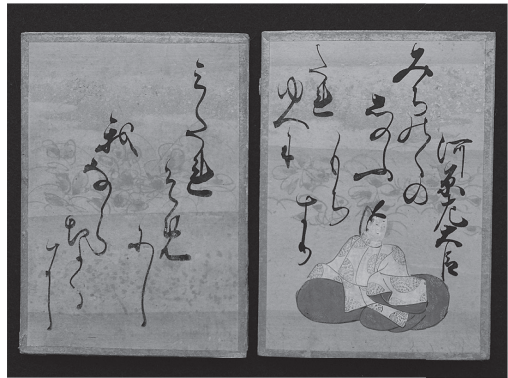 河原左大臣
みちのくの
しのふ
もち
すり
たれ
ゆへに
みたれ
そめ
にし
我
なら
なく
に